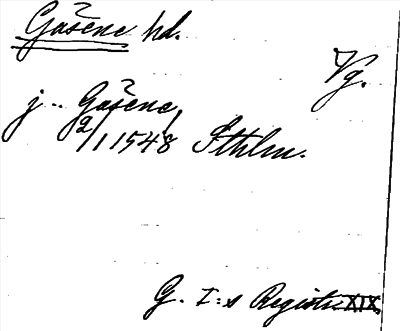 Gåsene hd.
Vg.
j Gåsene,
2/1 1548 Sthlm.
G. I:s Registr. XIX